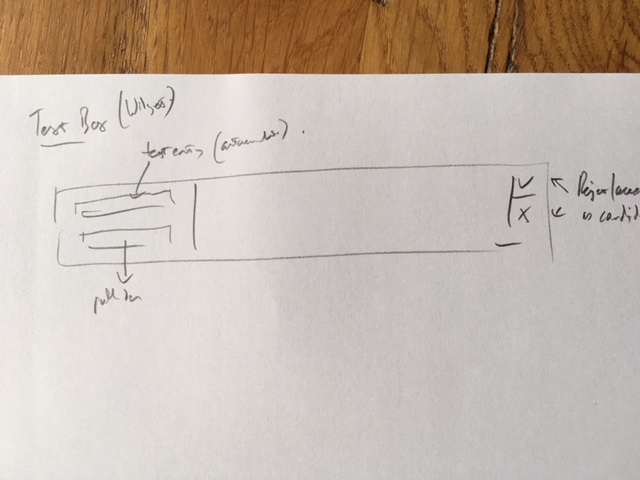 Text Box (Widget)
text entry (autocomplete).
✓
X
Reject/acce
as candid
pull down